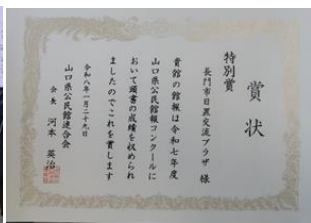 賞状
特別賞
長門市日置交流プラザ 様
貴館の館報は令和七年度
山口県公民館報コンクールに
おいて頭書の成績を収められ
ましたのでこれを賞します
令和八年一月二十九日
山口県公民館連合会
会長 河本 英治